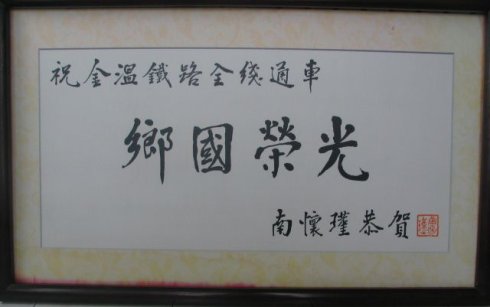 祝金溫鐵路全綫通車
鄉國榮光
南懷瑾恭賀